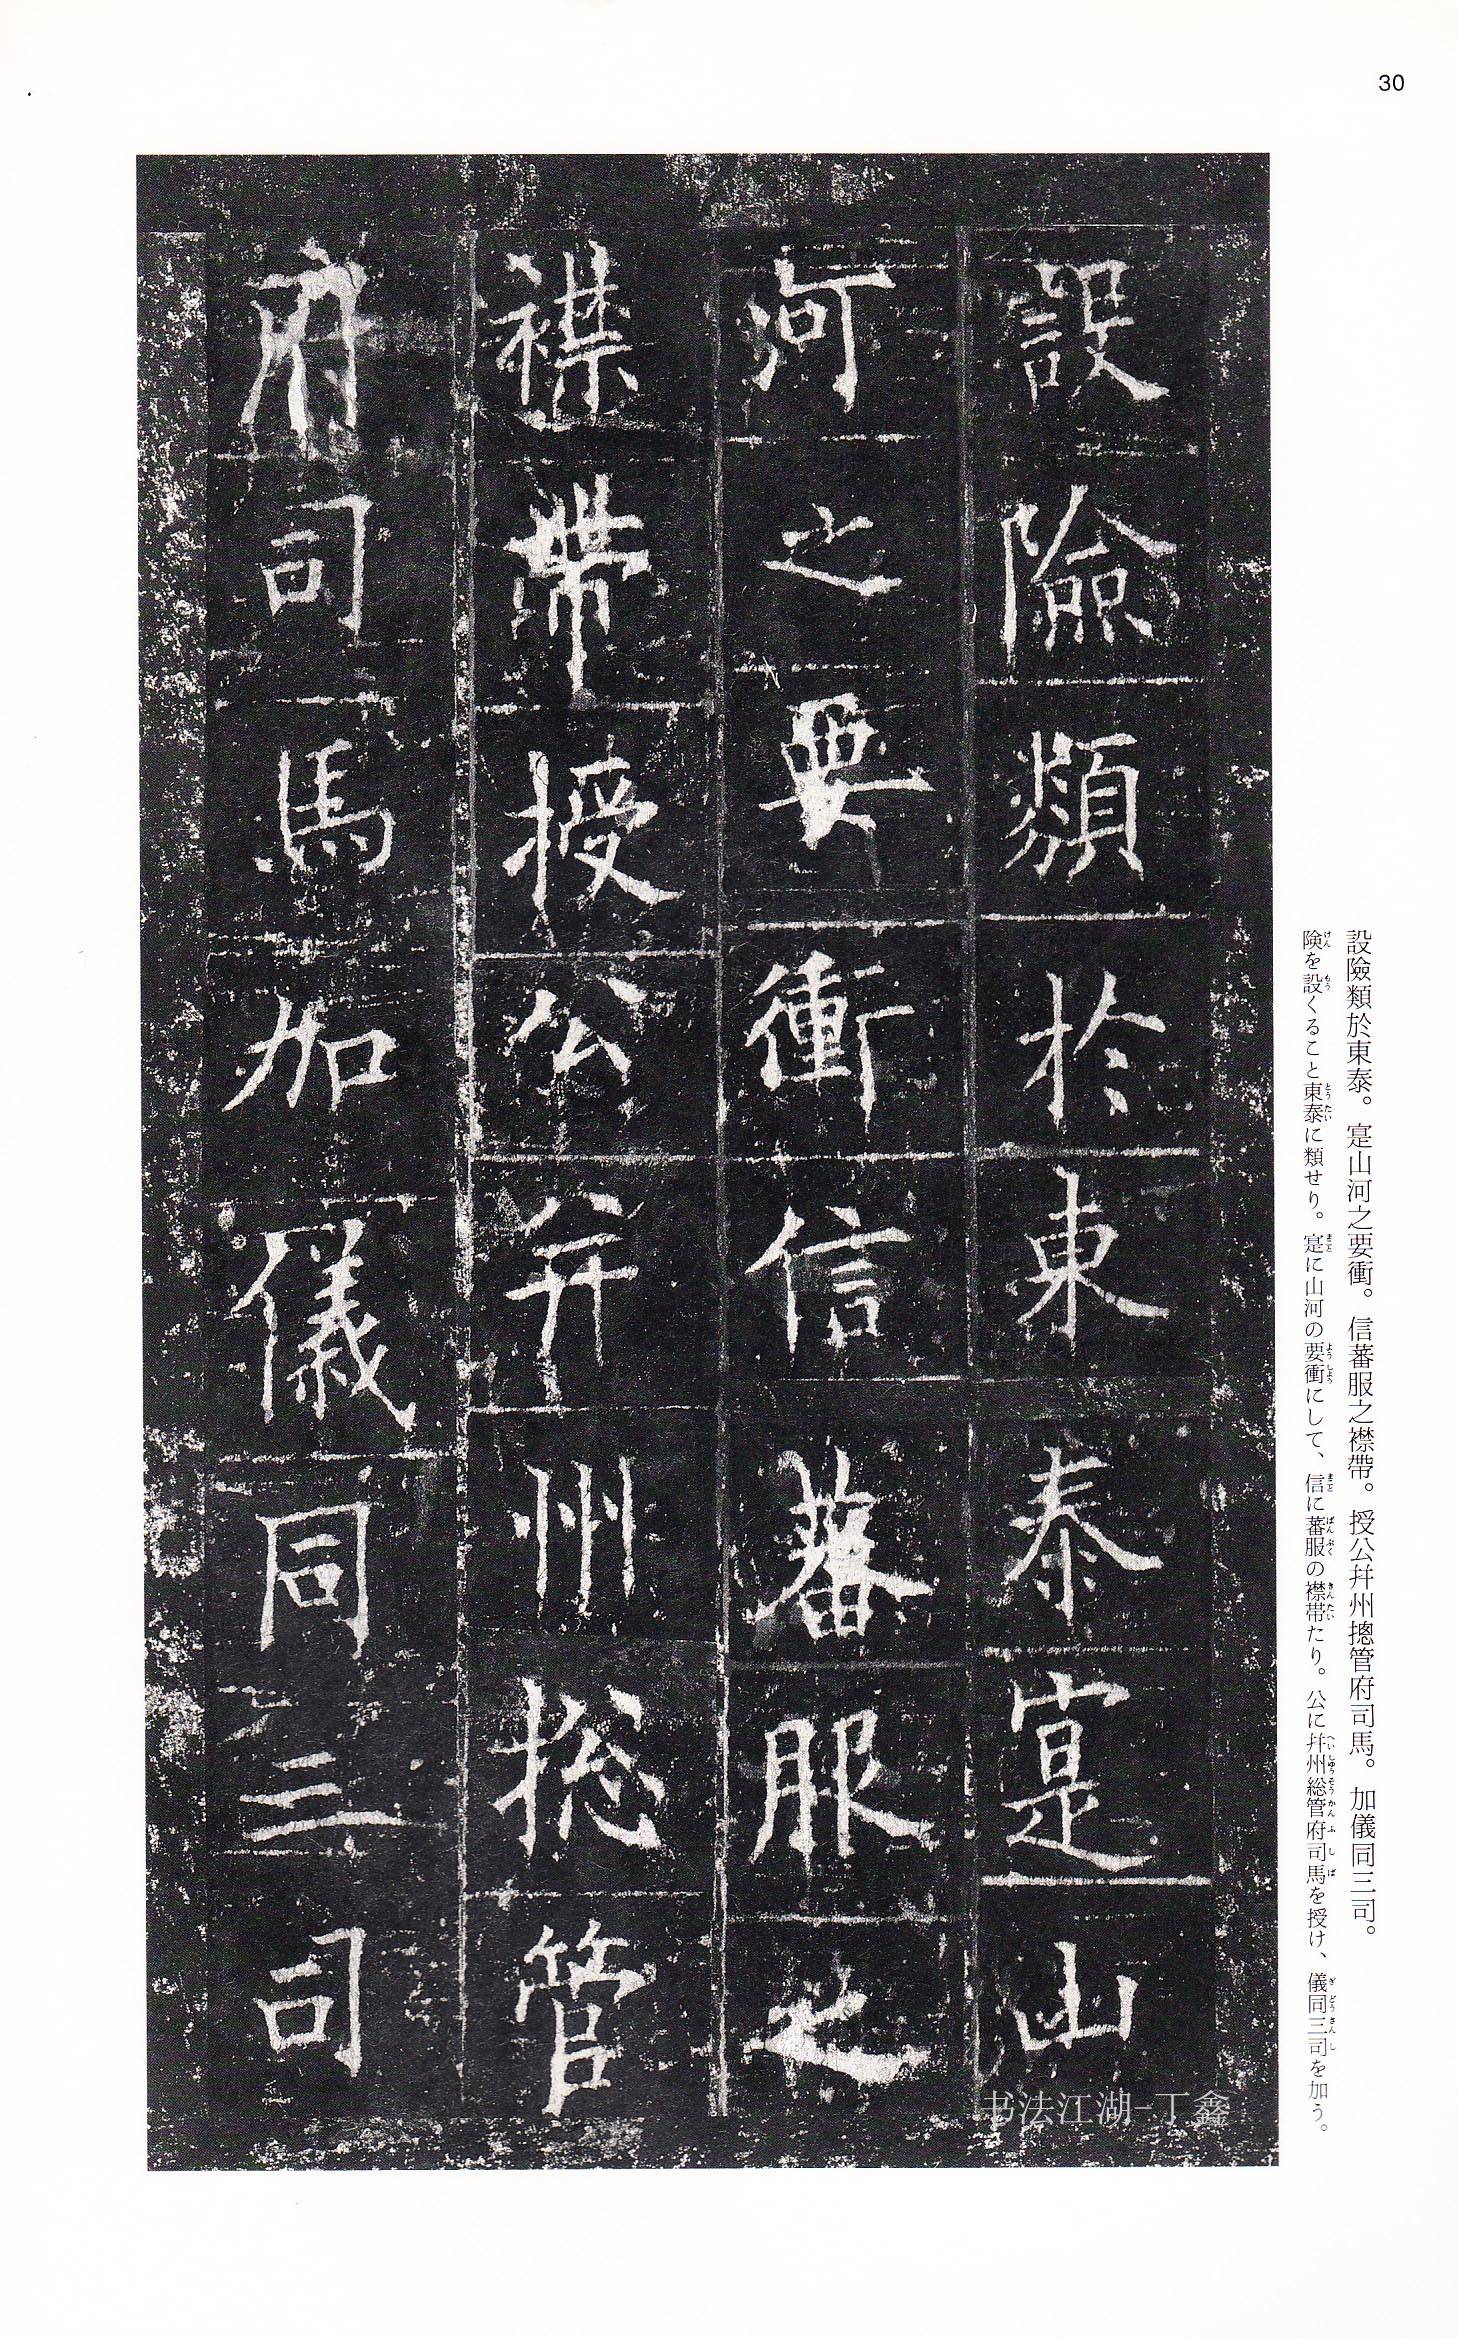 30
設險類於東泰。寔山河之要衝。信蕃服之襟帶。授公幷州摠管府司馬。加儀同三司。
険を設くること東泰に類せり。寔に山河の要衝にして、信に蕃服の襟帯たり。公に幷州総管府司馬を授け、儀同三司を加う。
設險類於東泰寔山
河之要衝信蕃服之
襟帶授公幷州摠管
府司馬加儀同三司
书法江湖-丁鑫